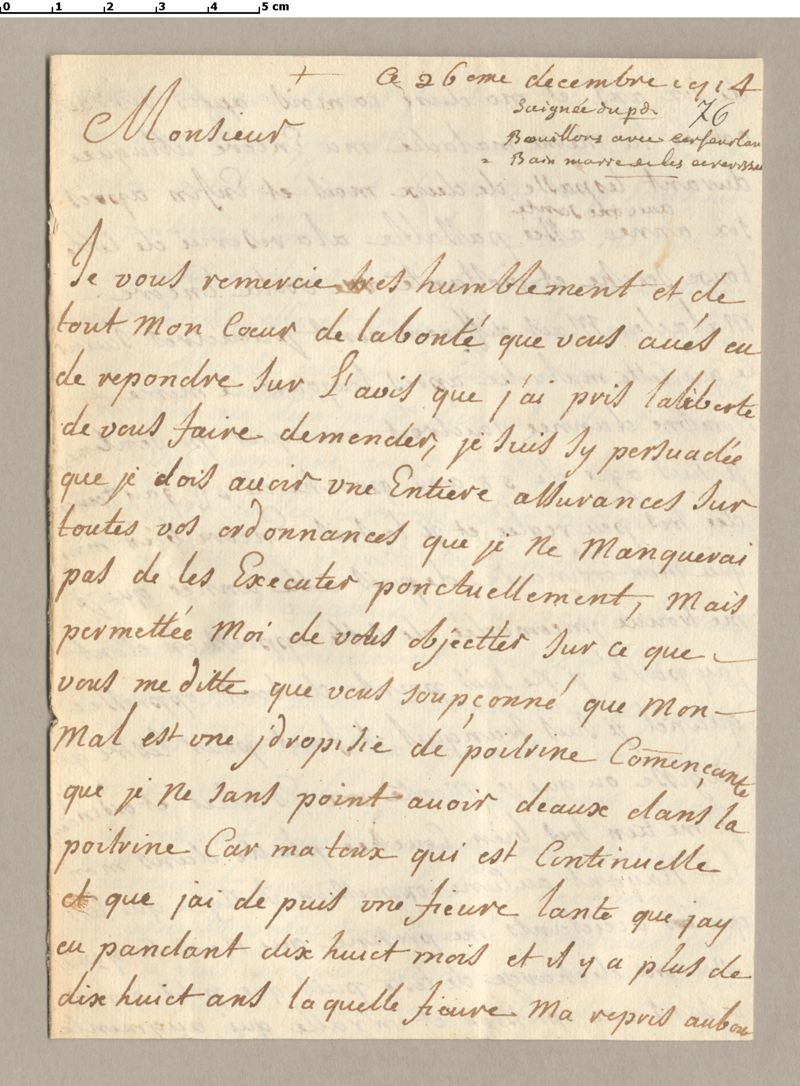 0 1 2 3 4 5 cm
Ce 26eme decembre 1714
76
Saignée du pd.
Monsieur
Bouillons avec
Bain marie et les ecrevisses
Je vous remercie tres humblement et de
tout Mon Cœur de labonté que vous aués eu
de repondre sur L'avis que j'ai pris laliberte
de vous faire demender, je suis sy persuadée
que je dois auoir vne Entiere assurances sur
toutes vos ordonnances que je Ne Manquerai
pas de les Executer ponctuellement, Mais
permettée Moi de vous objecter sur ce que
vous me ditte que vous soupçonné que Mon
Mal est vne jdropisie de poitrine Començante
que je Ne sans point auoir deaux dans la
poitrine Car ma toux qui est Continuelle
et que jai de puis vne fieure lante que jay
eu pandant dix huict mois et il y a plus de
dix huict ans laquelle fieure Ma repris aubou